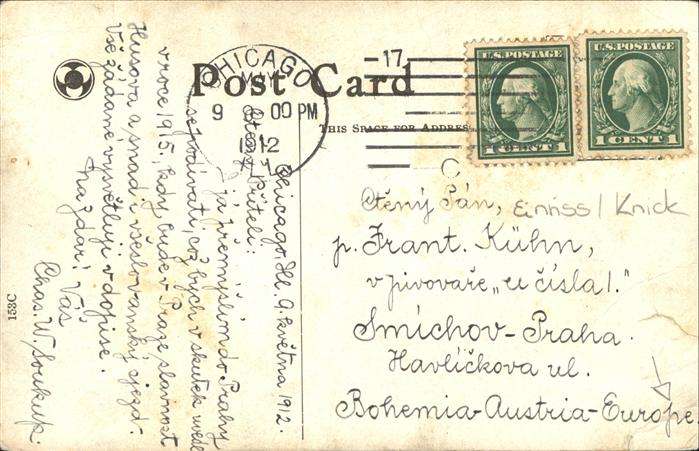 Post Card
THIS SPACE FOR ADDRESS
CHICAGO
MAY
9
00 PM
1912
17
U.S. POSTAGE
1 CENT 1
U.S. POSTAGE
1 CENT 1
Chicago, Ill. 9. května 1912.
Ctěný příteli:
já přemýšlím do Prahy
se podívati, což bych v skutek uvede
v roce 1915, kdy bude v Praze slavnost
Husova a snad i všeslovanský sjezd.
Vše žádané vysvětluji v dopise.
Nazdar! Váš
Chas. W. Soukup.
Ctěný Pán,
Einriss / Knick
p. Frant. Kühn,
v pivovaře „u čísla 1."
Smíchov-Praha.
Havlíčkova ul.
Bohemia-Austria-Europe.
153C